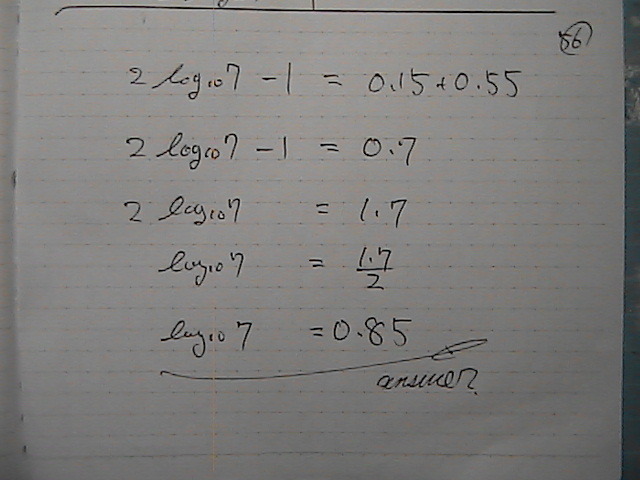 56
2 log₁₀7 - 1 = 0.15 + 0.55
2 log₁₀7 - 1 = 0.7
2 log₁₀7 = 1.7
log₁₀7 = 1.7/2
log₁₀7 = 0.85
answer